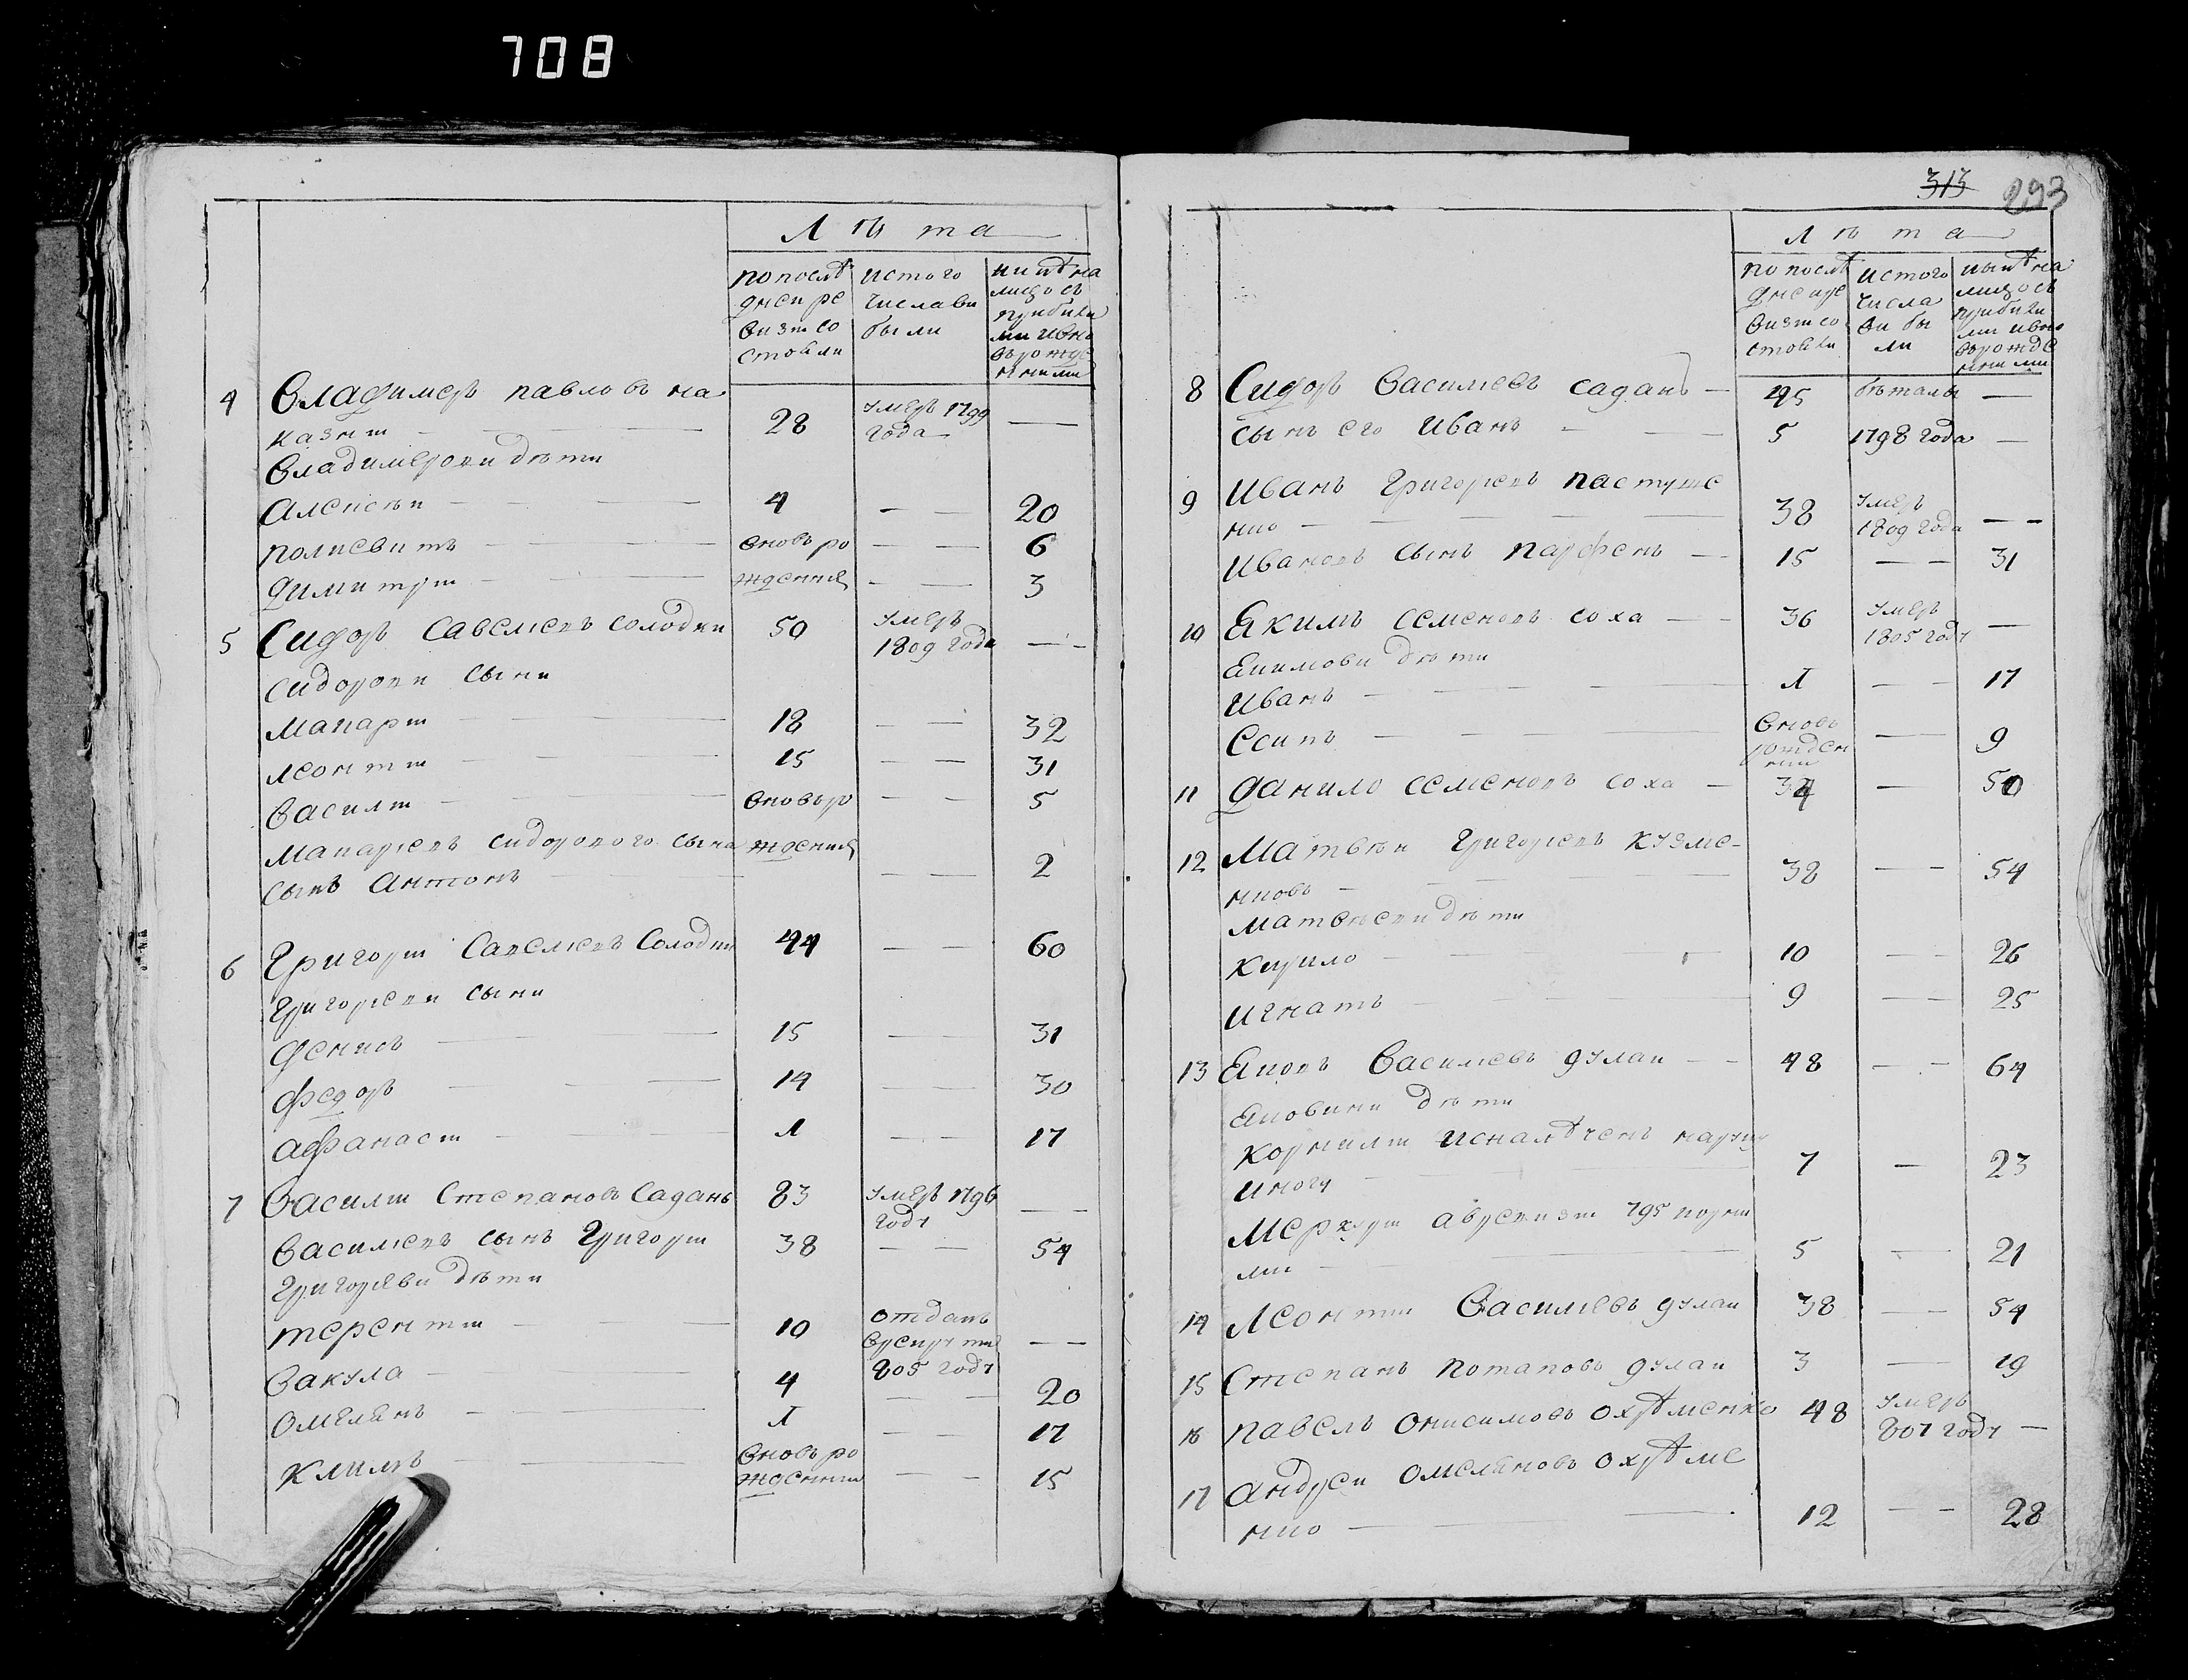 708
Лѣта
по послѣ
дней ре
визіи со
стояли
ис того
числа вы
были
ныне на
лицо съ
прибылы
ми и вно
въ рожде
нными
4 Владимеръ павловъ на
казнiй 28 умеръ 1799
года —
Владимеровы дѣти
алексѣй 4 — 20
поликвитъ вновь ро — 6
димитрiй жденныя — 3
5 Сидоръ Савелiевъ солодкiй 50 умеръ
1809 года —
сидоровы сыны
макарiй 18 — 32
леонтiй 15 — 31
василiй вновь ро — 5
макарiевъ сидорового сына жденныя
сынъ антонъ — 2
6 Григорiй Савелiевъ Солодкiй 44 — 60
Григорiевы сыны
денисъ 15 — 31
федоръ 14 — 30
афанасiй л — 17
7 Василiй Степановъ Саданъ 83 умеръ 1796
году —
василiевъ сынъ Григорiй 38 — 54
Григорьевы дѣти
терентiй 10 отданъ
врекруты
805 году —
вакула 4 — 20
омелянъ л — 17
климъ вновь ро
жденный — 15
313 293
Лѣта
по послѣ
дней ре
визіи со
стояли
ис того
числа
вы бы
ли
ныне на
лицо съ
прибылы
ми и вно
въ рожде
нными
8 Сидоръ Василiевъ саданъ — 45 бѣжалы —
сынъ его иванъ — 5 1798 года —
9 иванъ Григорiевъ пастуше
нко — 38 умеръ
1809 года —
ивановъ сынъ парфенъ — 15 — 31
10 Якимъ семеновъ соха — 36 умеръ
1805 году —
Якимовы дѣти
иванъ — л — 17
Есипъ — вновь
рожден
ный — 9
11 данило семеновъ соха — 34 — 50
12 Матвѣй Григорiевъ кузме-
нковъ — 38 — 54
матвѣевы дѣти
кирило — 10 — 26
игнатъ — 9 — 25
13 Яковъ Василiевъ дулай — 48 — 64
Яковины дѣти
корнилiй искалѣченъ на руку
и ногу — 7 — 23
Меркурiй аврекизiи 795 порки
лiи — 5 — 21
14 Леонтiй Василiевъ дулай 38 — 54
15 Степанъ потаповъ дулай 3 — 19
16 павелъ онисимовъ охрѣменко 48 умеръ
807 году —
17 андрей омеляновъ охрѣме
нко — 12 — 28